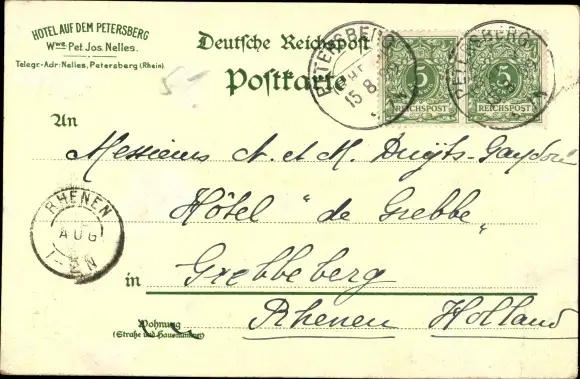 HOTEL AUF DEM PETERSBERG
Wwe Pet. Jos. Nelles.
Telegr.-Adr: Nelles, Petersberg (Rhein).
Deutsche Reichspost
Postkarte
PETERSBERG
15 8
5
REICHSPOST
PETERSBERG
5
REICHSPOST
An
Messieurs A. et M. Duijts-
Hôtel "de Grebbe"
RHENEN
AUG
1-2N
in Grebbeberg
Rhenen Holland
Wohnung
(Straße und Hausnummer)